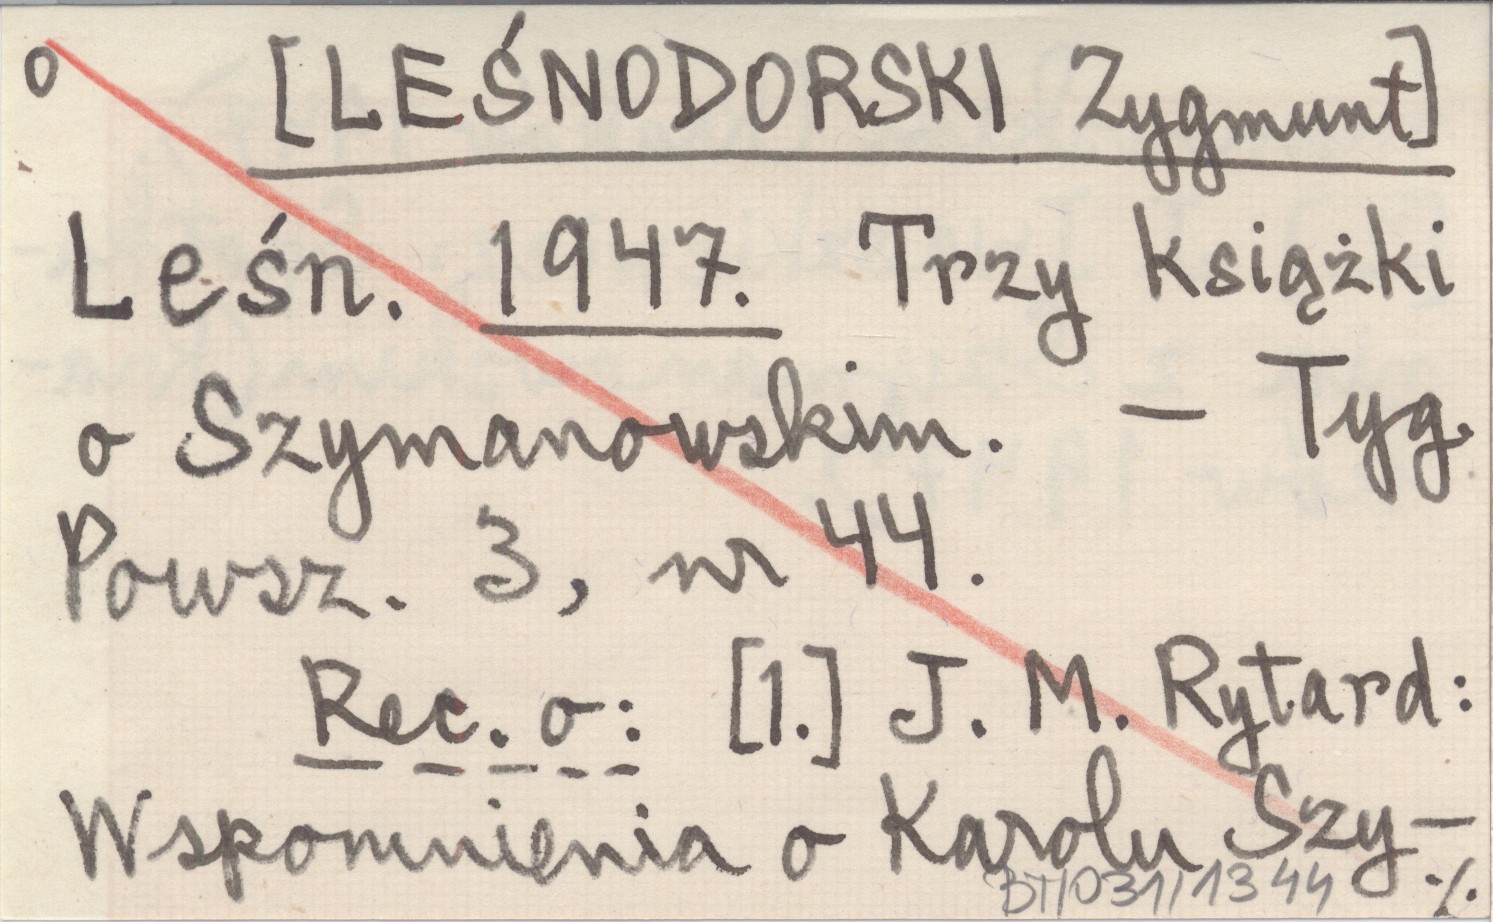 o [LEŚNODORSKI Zygmunt]
Leśn. 1947. Trzy książki
o Szymanowskim. – Tyg.
Powsz. 3, nr 44.
Rec. o: [1.] J. M. Rytard:
Wspomnienia o Karolu Szy-
BT/031/1344 ./.